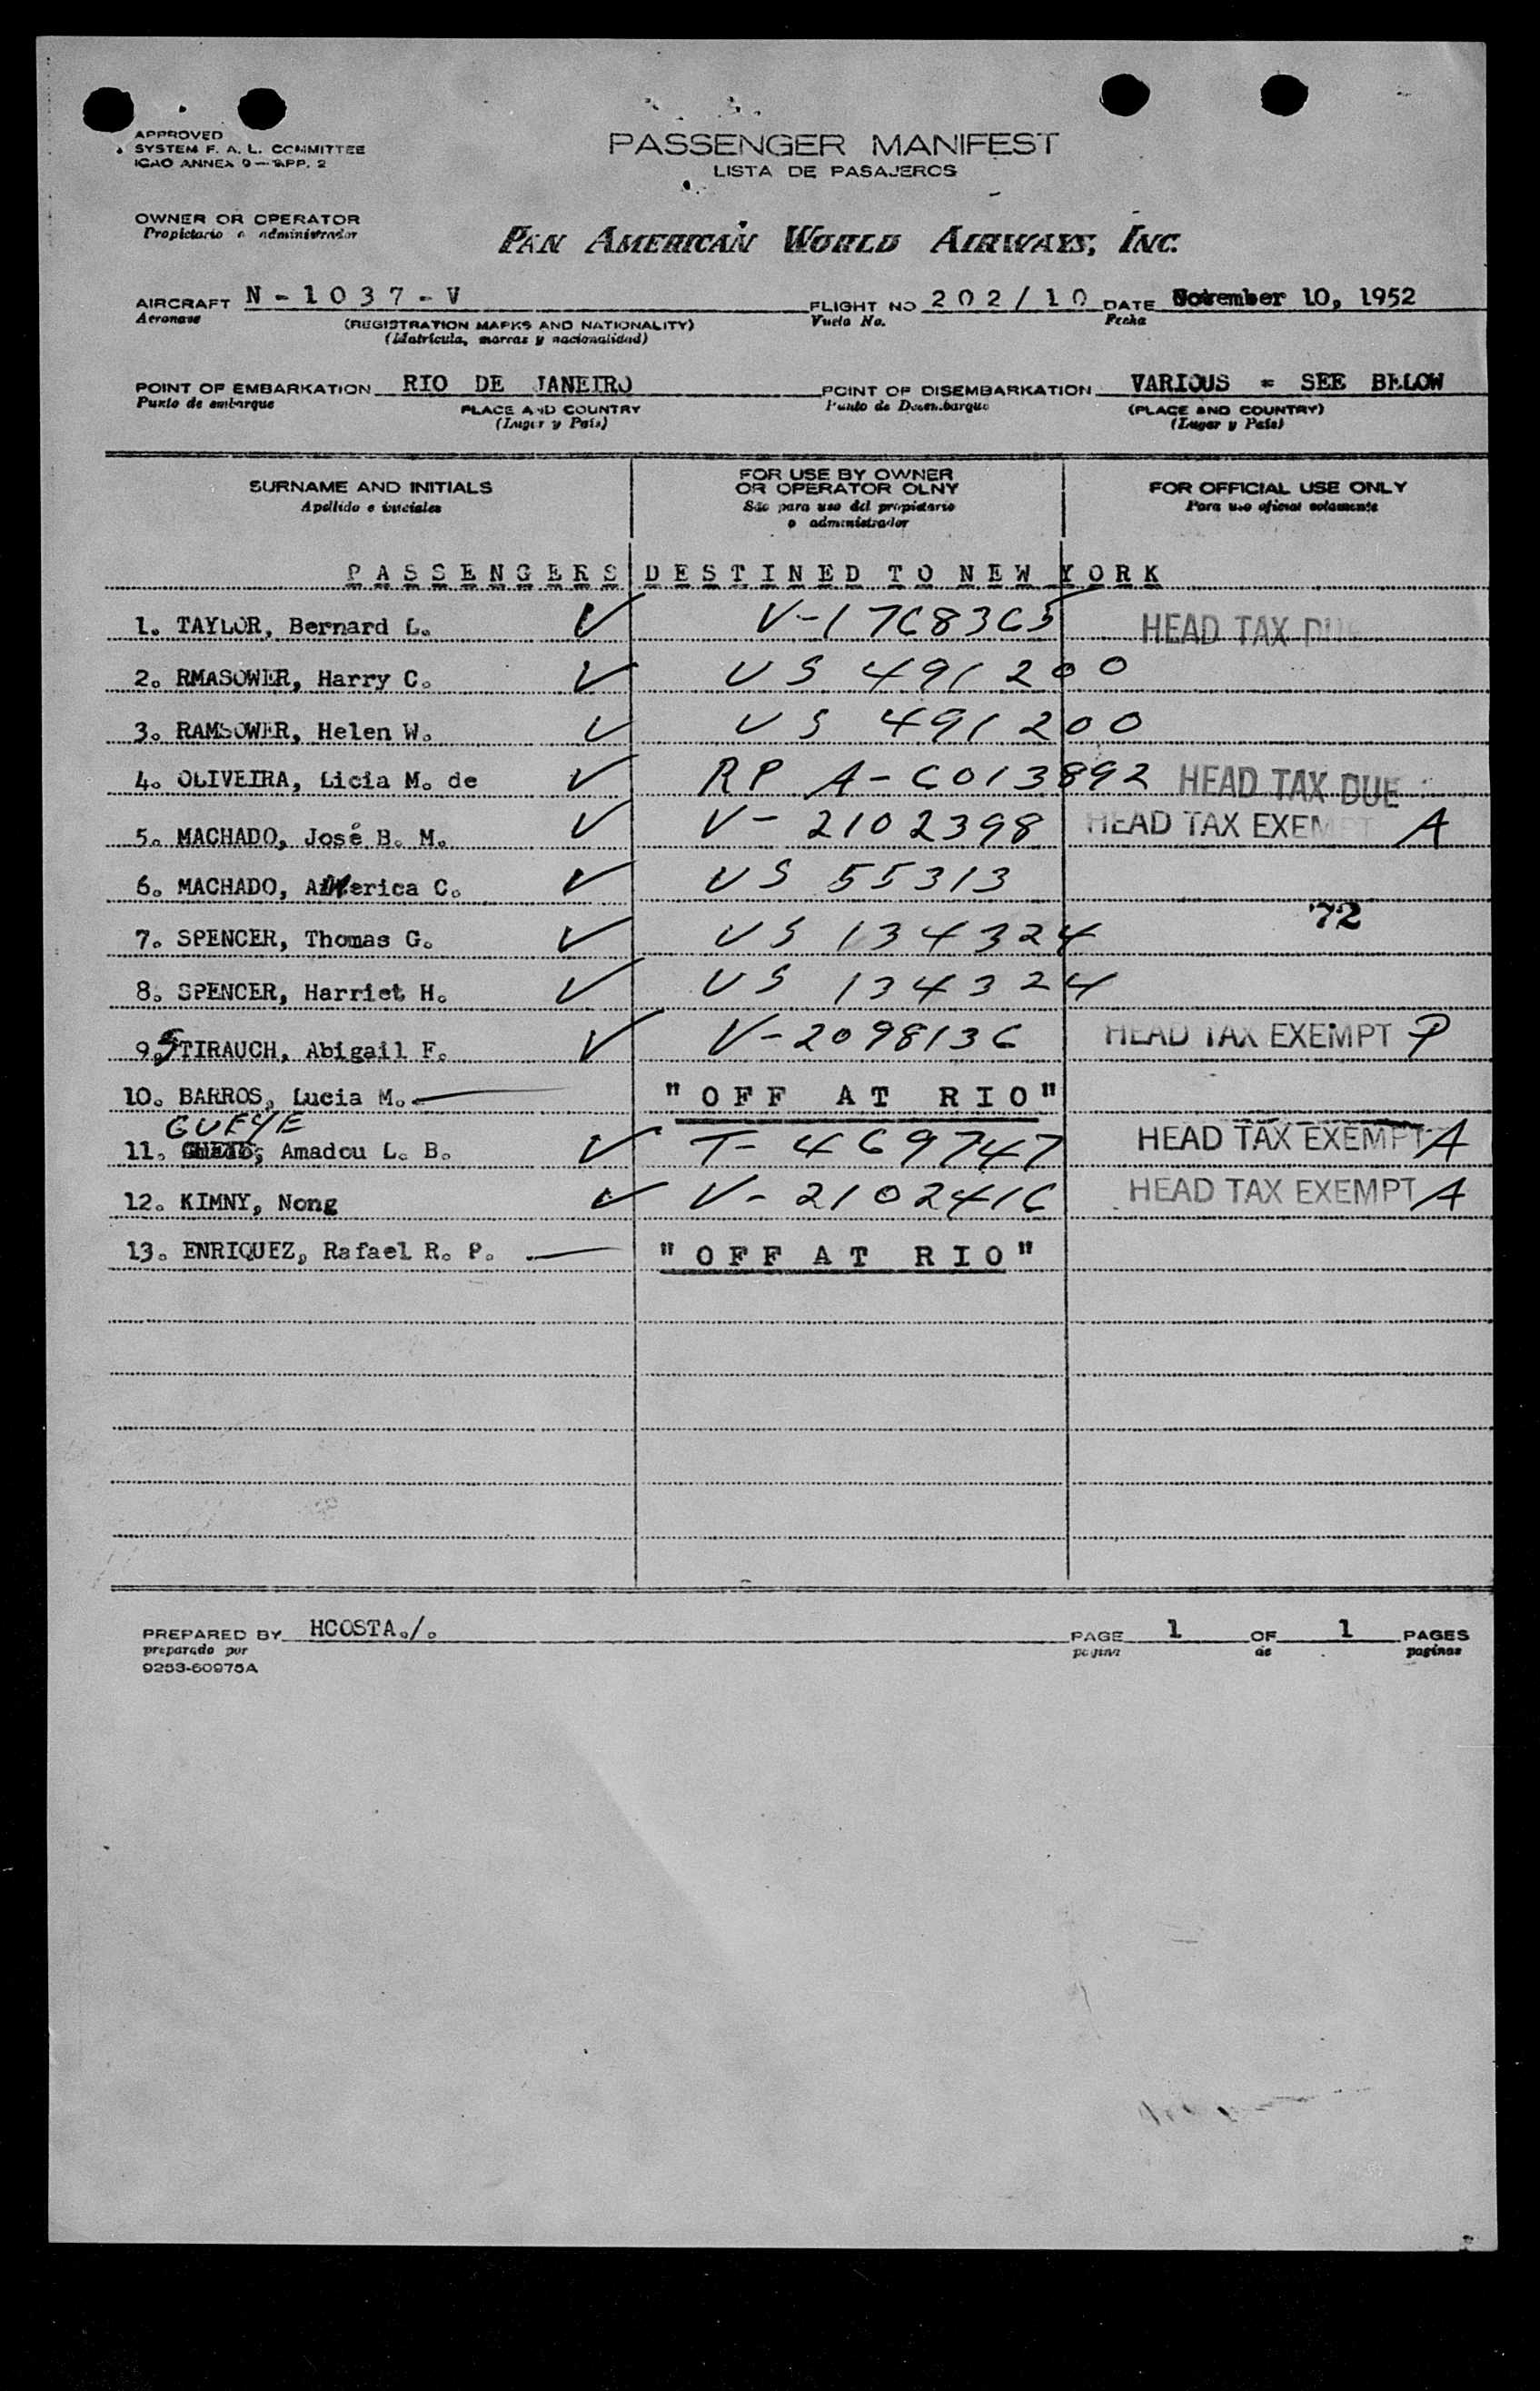 APPROVED
SYSTEM F. A. L. COMMITTEE
ICAO ANNEX 9 — APP. 2
PASSENGER MANIFEST
LISTA DE PASAJEROS
OWNER OR OPERATOR
Propietario o administrador
PAN AMERICAN WORLD AIRWAYS, INC.
AIRCRAFT N - 1 0 3 7 - V FLIGHT NO 2 0 2 / 1 0 DATE November 10, 1952
Aeronave (REGISTRATION MARKS AND NATIONALITY) Vuelo No. Fecha
(Matrícula, marcas y nacionalidad)
POINT OF EMBARKATION RIO DE JANEIRO POINT OF DISEMBARKATION VARIOUS = SEE BELOW
Punto de embarque PLACE AND COUNTRY Punto de Desembarque (PLACE AND COUNTRY)
(Lugar y País) (Lugar y País)
SURNAME AND INITIALS
Apellido e iniciales
FOR USE BY OWNER
OR OPERATOR OLNY
Sáo para uso del propietario
o administrador
FOR OFFICIAL USE ONLY
Para uso oficial solamente
PASSENGERS DESTINED TO NEW YORK
1. TAYLOR, Bernard L. ✓ V-1768365 HEAD TAX DUE
2. RMASOWER, Harry C. ✓ US 491200
3. RAMSOWER, Helen W. ✓ US 491200
4. OLIVEIRA, Licia M. de ✓ RP A-6013892 HEAD TAX DUE
5. MACHADO, José B. M. ✓ V-2102398 HEAD TAX EXEMPT A
6. MACHADO, America C. ✓ US 55313
7. SPENCER, Thomas G. ✓ US 134324 72
8. SPENCER, Harriet H. ✓ US 134324
9. STIRAUCH, Abigail F. ✓ V-2098136 HEAD TAX EXEMPT P
10. BARROS, Lucia M. — "OFF AT RIO"
GUEYE
11. Amadou L. B. ✓ T-469747 HEAD TAX EXEMPT A
12. KIMNY, Nong ✓ V-2102416 HEAD TAX EXEMPT A
13. ENRIQUEZ, Rafael R. P. — "OFF AT RIO"
PREPARED BY HCOSTA./. PAGE 1 OF 1 PAGES
preparado por pagina de paginas
9253-60975A